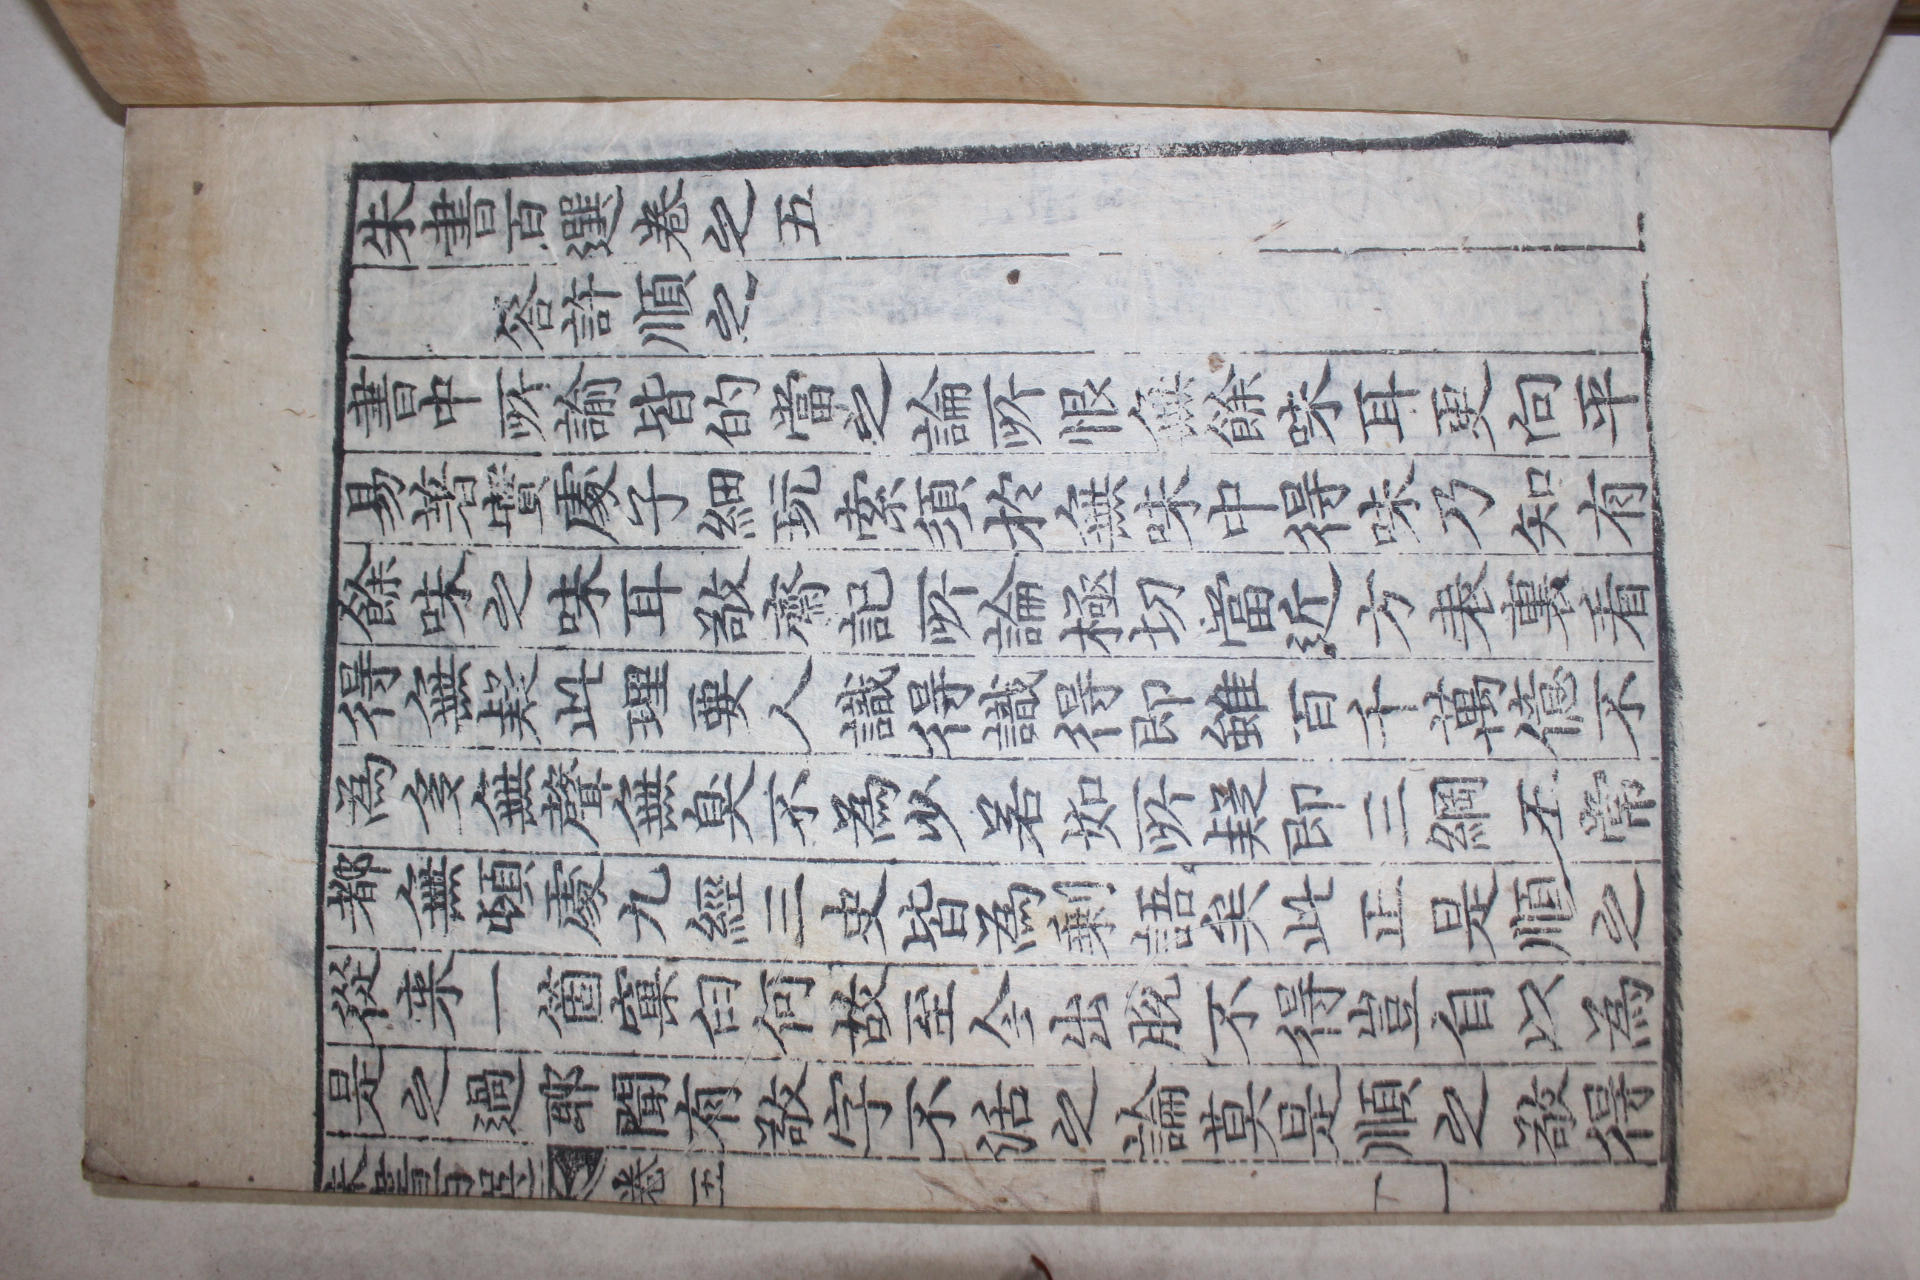 朱書百選卷之五
答許順之
書中所諭皆的當之論所恨無餘味耳更向平
易着實處子細玩索須於無味中得味乃知有
餘味之味耳敬齋記所論極切當近方表裏看
得無疑此理要人識得識得即雖百千萬億不
爲多無聲無臭不爲少若如所疑即三綱五常
都無頓處九經三史皆爲剩語矣此正是順之
從來一箇窠臼何故至今出脫不得豈自以爲
是之過耶聞有敬字不活之論莫是順之敬得
朱書百選 卷五